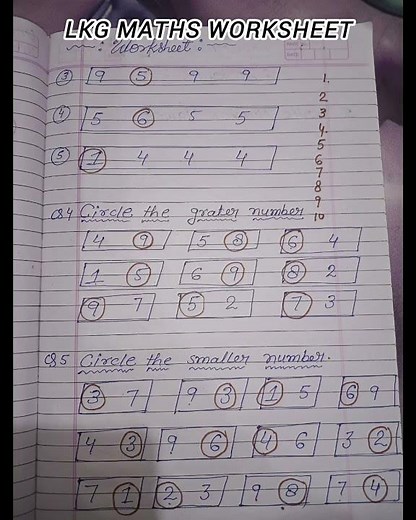 LKG MATHS WORKSHEET
: Worksheet :
③ 9 5 9 9
④ 5 6 5 5
⑤ 1 4 4 4
1.
2
3
4.
5
6
7
8
9
10
Q4 Circle the grater number
4 9 5 8 6 4
1 5 6 9 8 2
9 7 5 2 7 3
Q5 Circle the smaller number.
3 7 9 3 1 5 6 9
4 3 9 6 4 6 3 2
7 1 2 3 9 8 7 4